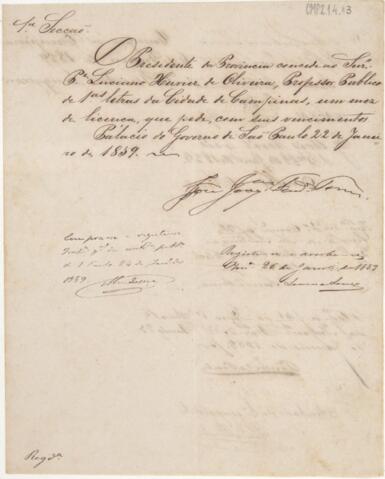 CMP2.1.4.13
1ª Secção
O Presidente da Provincia concede ao Snr.
Pe. Luciano Xavier de Oliveira, Professor Publico
de 1as letras da Cidade de Campinas, um mez
de licença, que pede, com seus vencimentos
Palacio do Governo de São Paulo 22 de Janei
ro de 1859.
José Joaqm. Fernd. Torres
Cumpra-se e registre-se
S. Paulo 24 de Janº de
1859
Registre-se e archive-se
26 de Janrº de 1859
Regda.